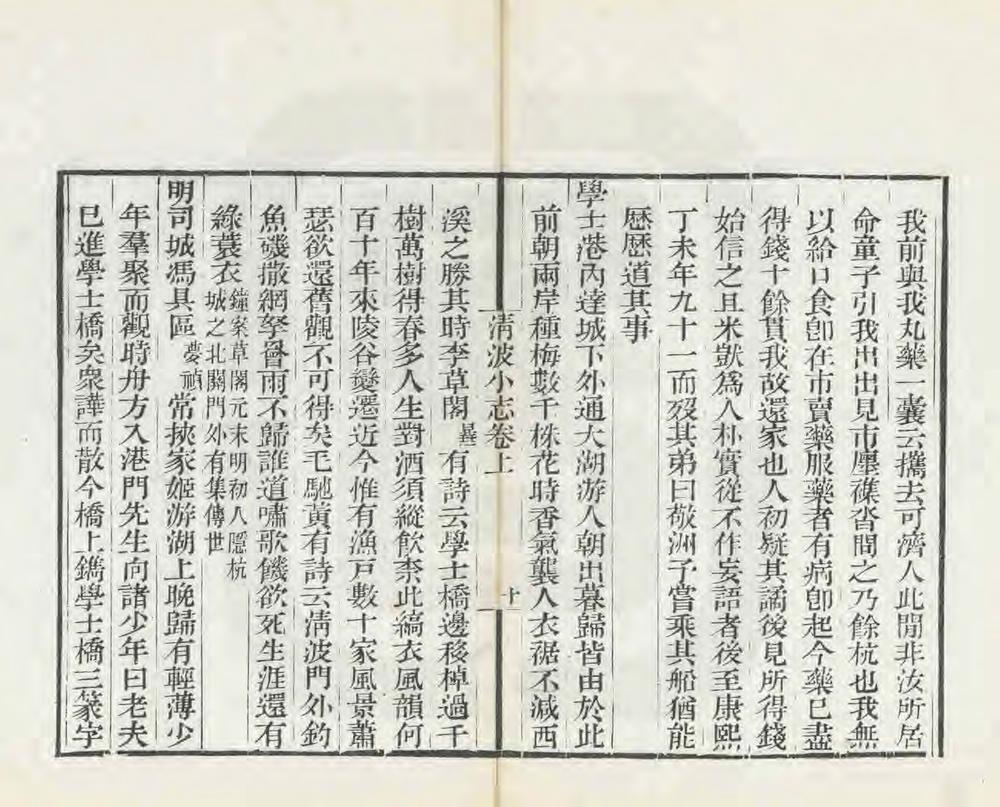 我前與我丸藥一囊云攜去可濟人此閒非汝所居
命童子引我出出見市㕓襍沓問之乃餘杭也我無
以給口食卽在市賣藥服藥者有病卽起今藥已盡
得錢十餘貫我故還家也人初疑其譎後見所得錢
始信之且米獃爲人朴實從不作妄語者後至康熙
丁未年九十一而歿其弟曰敬洲予嘗乘其船猶能
歷歷道其事
學士港內達城下外通大湖游人朝出暮歸皆由於此
前朝兩岸種梅數千株花時香氣襲人衣裾不減西
淸波小志卷上 十
溪之勝其時李草閣曅有詩云學士橋邊移棹過千
樹萬樹得春多人生對酒須縱飮柰此縞衣風韻何
百十年來陵谷變遷近今惟有漁戸數十家風景蕭
瑟欲還舊觀不可得矣毛馳黃有詩云淸波門外釣
魚磯撒網拏罾雨不歸誰道嘯歌饑欲死生涯還有
綠蓑衣鐘案草閣元末明初人隱杭城之北關門外有集傳世
明司城馮具區夢禎常挾家姬游湖上晚歸有輕薄少
年羣聚而觀時舟方入港門先生向諸少年曰老夫
已進學士橋矣衆譁而散今橋上鐫學士橋三篆字